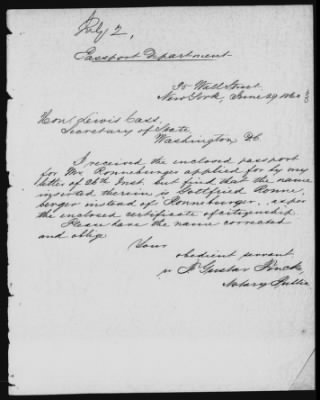 July 2,
Passport Department
35 Wall Street
New York, June 29, 1860
Hon. Lewis Cass,
Secretary of State,
Washington, DC
I received the enclosed passport
for Mr. Ronneburger applied for by my
letter of 26th Inst. but find that the name
inserted therein is Gottfried Ronne
berger instead of Ronneburger, as per
the enclosed certificate of citizenship.
Please have the name corrected
and oblige
Your
obedient servant
F. Gustav Finck,
Notary Public